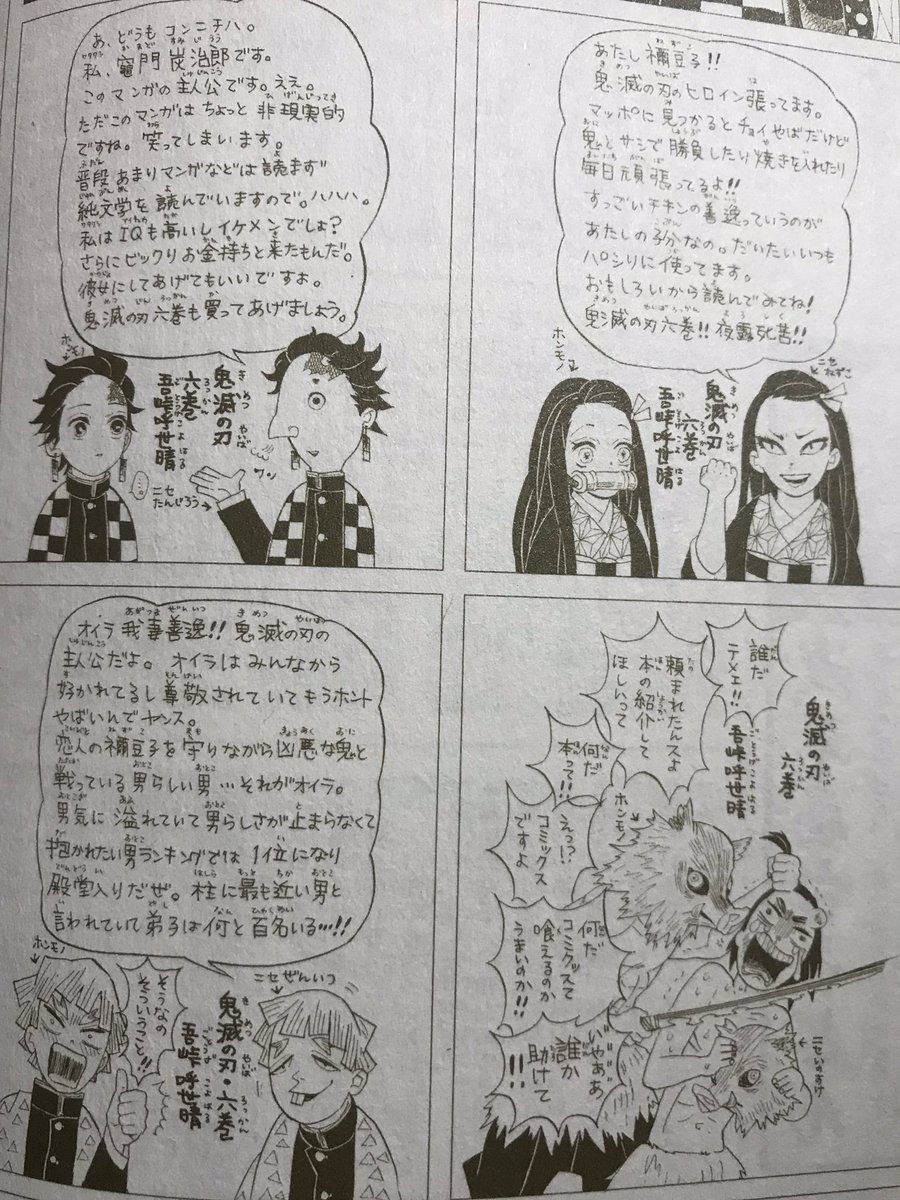 あ、どうもコンニチハ。
私、竈門炭治郎です。
このマンガの主人公です。ええ。
ただこのマンガはちょっと非現実的
ですね。笑ってしまいます。
普段あまりマンガなどは読まず
純文学を読んでいますので。ハハハ。
私はIQも高いしイケメンでしょ?
さらにビックリお金持ちと来たもんだ。
彼女にしてあげてもいいですよ。
鬼滅の刃六巻も買ってあげましょう。
ホンモノ
鬼滅の刃
六巻
吾峠呼世晴
ニセ
たんじろう
あたし禰豆子!!
鬼滅の刃のヒロイン張ってます。
マッポに見つかるとチョイやばだけど
鬼とサシで勝負したり焼きを入れたり
毎日頑張ってるよ!!
すっごいチキンの善逸っていうのが
あたしの子分なの。だいたいいつも
パシリに使ってます。
おもしろいから読んでみてね!
鬼滅の刃六巻!!夜露死苦!!
ホンモノ
鬼滅の刃
六巻
吾峠呼世晴
ニセ
ねずこ
オイラ我妻善逸!!鬼滅の刃の
主人公だよ。オイラはみんなから
好かれてるし尊敬されていてもうホント
やばいんでヤンス。
恋人の禰豆子を守りながら凶悪な鬼と
戦っている男らしい男…それがオイラ。
男気に溢れていて男らしさが止まらなくて
抱かれたい男ランキングでは1位になり
殿堂入りだぜ。柱に最も近い男と
言われていて弟子は何と百名いる…!!
ホンモノ
そうなの
そういうこと!!
鬼滅の刃・六巻
吾峠呼世晴
ニセぜんいつ
鬼滅の刃
六巻
吾峠呼世晴
誰だ
テメェ!!
頼まれたんスよ
本の紹介して
ほしいって
何だ
本って!!
えっ?
コミックス
ですよ
何だ
コミックスて
喰えるのか
うまいのか!!
いやぁあ
誰か
助けて
!!!
ホンモノ
ニセいのすけ